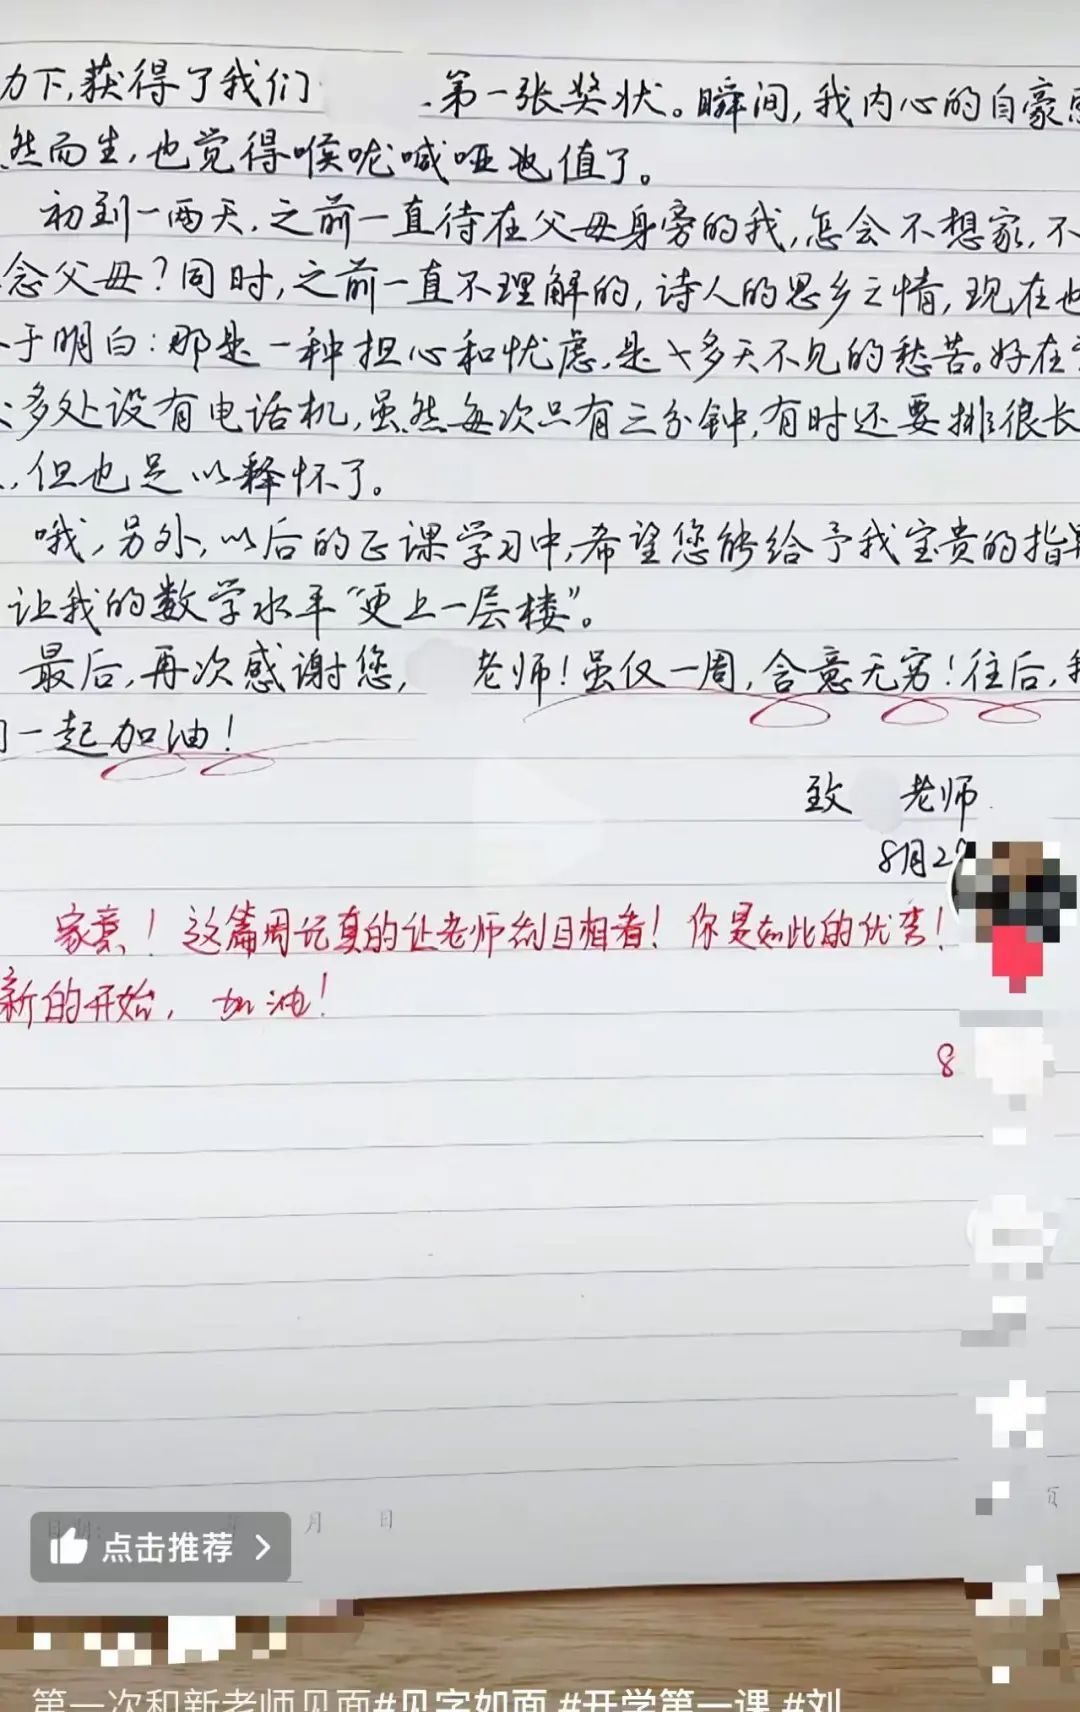 力下,获得了我们 .第一张奖状。瞬间,我内心的自豪感
然而生,也觉得喉咙喊哑也值了。
初到一两天,之前一直待在父母身旁的我,怎会不想家,不
念父母?同时,之前一直不理解的,诗人的思乡之情,现在也
于明白:那是一种担心和忧虑,是十多天不见的愁苦。好在
多处设有电话机,虽然每次只有三分钟,有时还要排很长
,但也足以释怀了。
哦,另外,以后的正课学习中,希望您能给予我宝贵的指
让我的数学水平“更上一层楼”。
最后,再次感谢您, 老师!虽仅一周,含意无穷!往后,我
们一起加油!
致 老师
8月2
家豪!这篇周记真的让老师刮目相看!你是如此的优秀!
新的开始,加油!
8
月 日
页
点击推荐 >
第一次和新老师见面#见字如面 #开学第一课 #刘